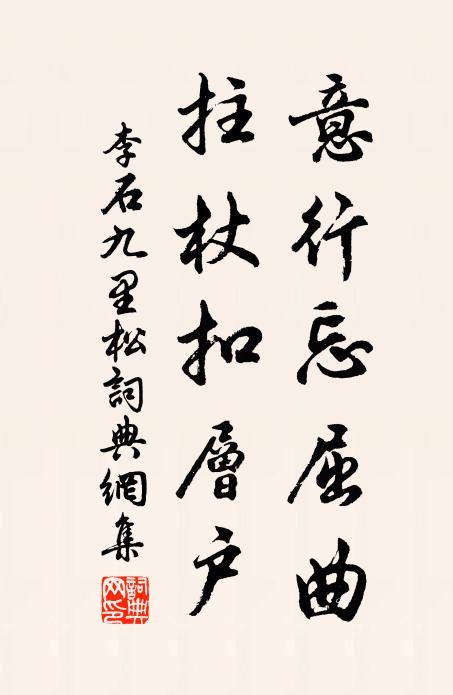 意行忘屈曲
拄杖扣層户
李石九里松詞典網集
詞典網印